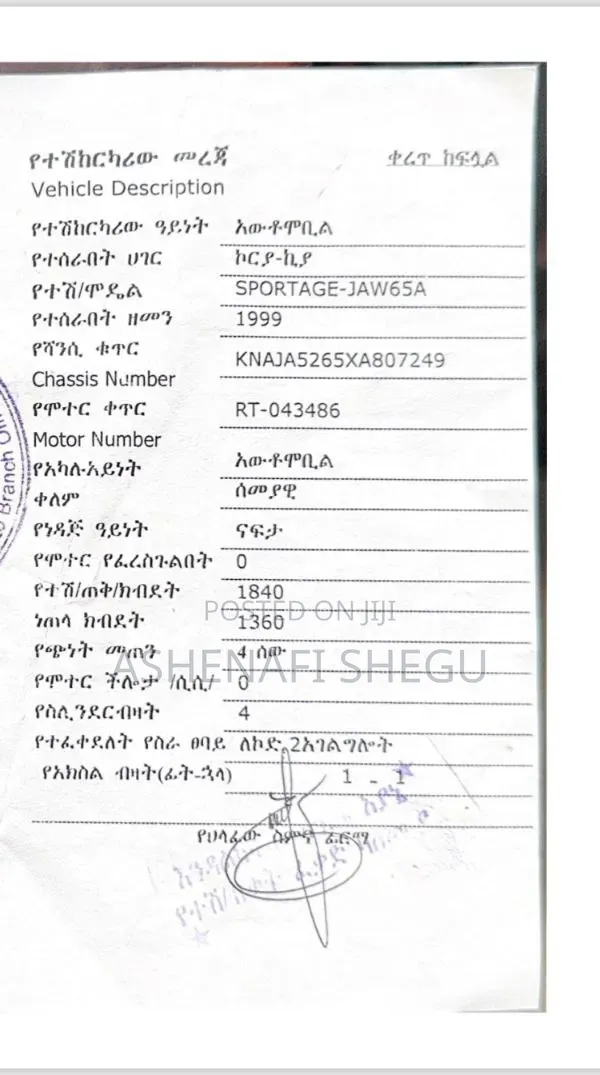 የተሽከርካሪው መረጃ ቀረጥ ከፍሏል
Vehicle Description
የተሽከርካሪው ዓይነት አውቶሞቢል
የተሰራበት ሀገር ኮርያ-ኪያ
የተሽ/ሞዴል SPORTAGE-JAW65A
የተሰራበት ዘመን 1999
የሻንሲ ቁጥር KNAJA5265XA807249
Chassis Number
የሞተር ቀጥር RT-043486
Motor Number
የአካሉ-አይነት አውቶሞቢል
ቀለም ሰመያዊ
የነዳጅ ዓይነት ናፍታ
የሞተር የፈረስጉልበት 0
የተሽ/ጠቅ/ክብደት 1840
POSTED ON JIJI
ነጠላ ክብደት 1360
የጭነት መጠን 4 ሰው
ASHENAFI SHEGU
የሞተር ችሎታ /ሲሲ/ 0
የስሊንደርብዛት 4
የተፈቀደለት የስራ ፀባይ ለኮድ 2አገልግሎት
የአክስል ብዛት(ፊት-ኋላ) 1 - 1
የሀላፊው ስምና ፊርማ
Branch